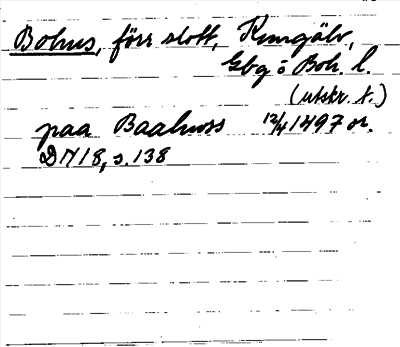 Bohus, förr slott, Kungälv,
Gbg o Boh. l.
(utskr. f.)
paa Baahuss 12/4 1497 or.
DN 18, s. 138